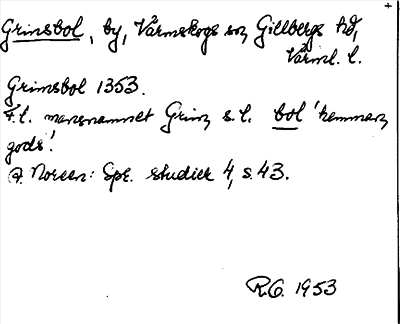 Grinsbol, by, Värmskogs sn, Gillbergs hd,
Värml. l.
Grimsbol 1353.
F.l. mansnamnet Grim, s.l. bol 'hemman,
gods'.
A. Noreen: Spr. studier 4, s. 43.
R.G. 1953